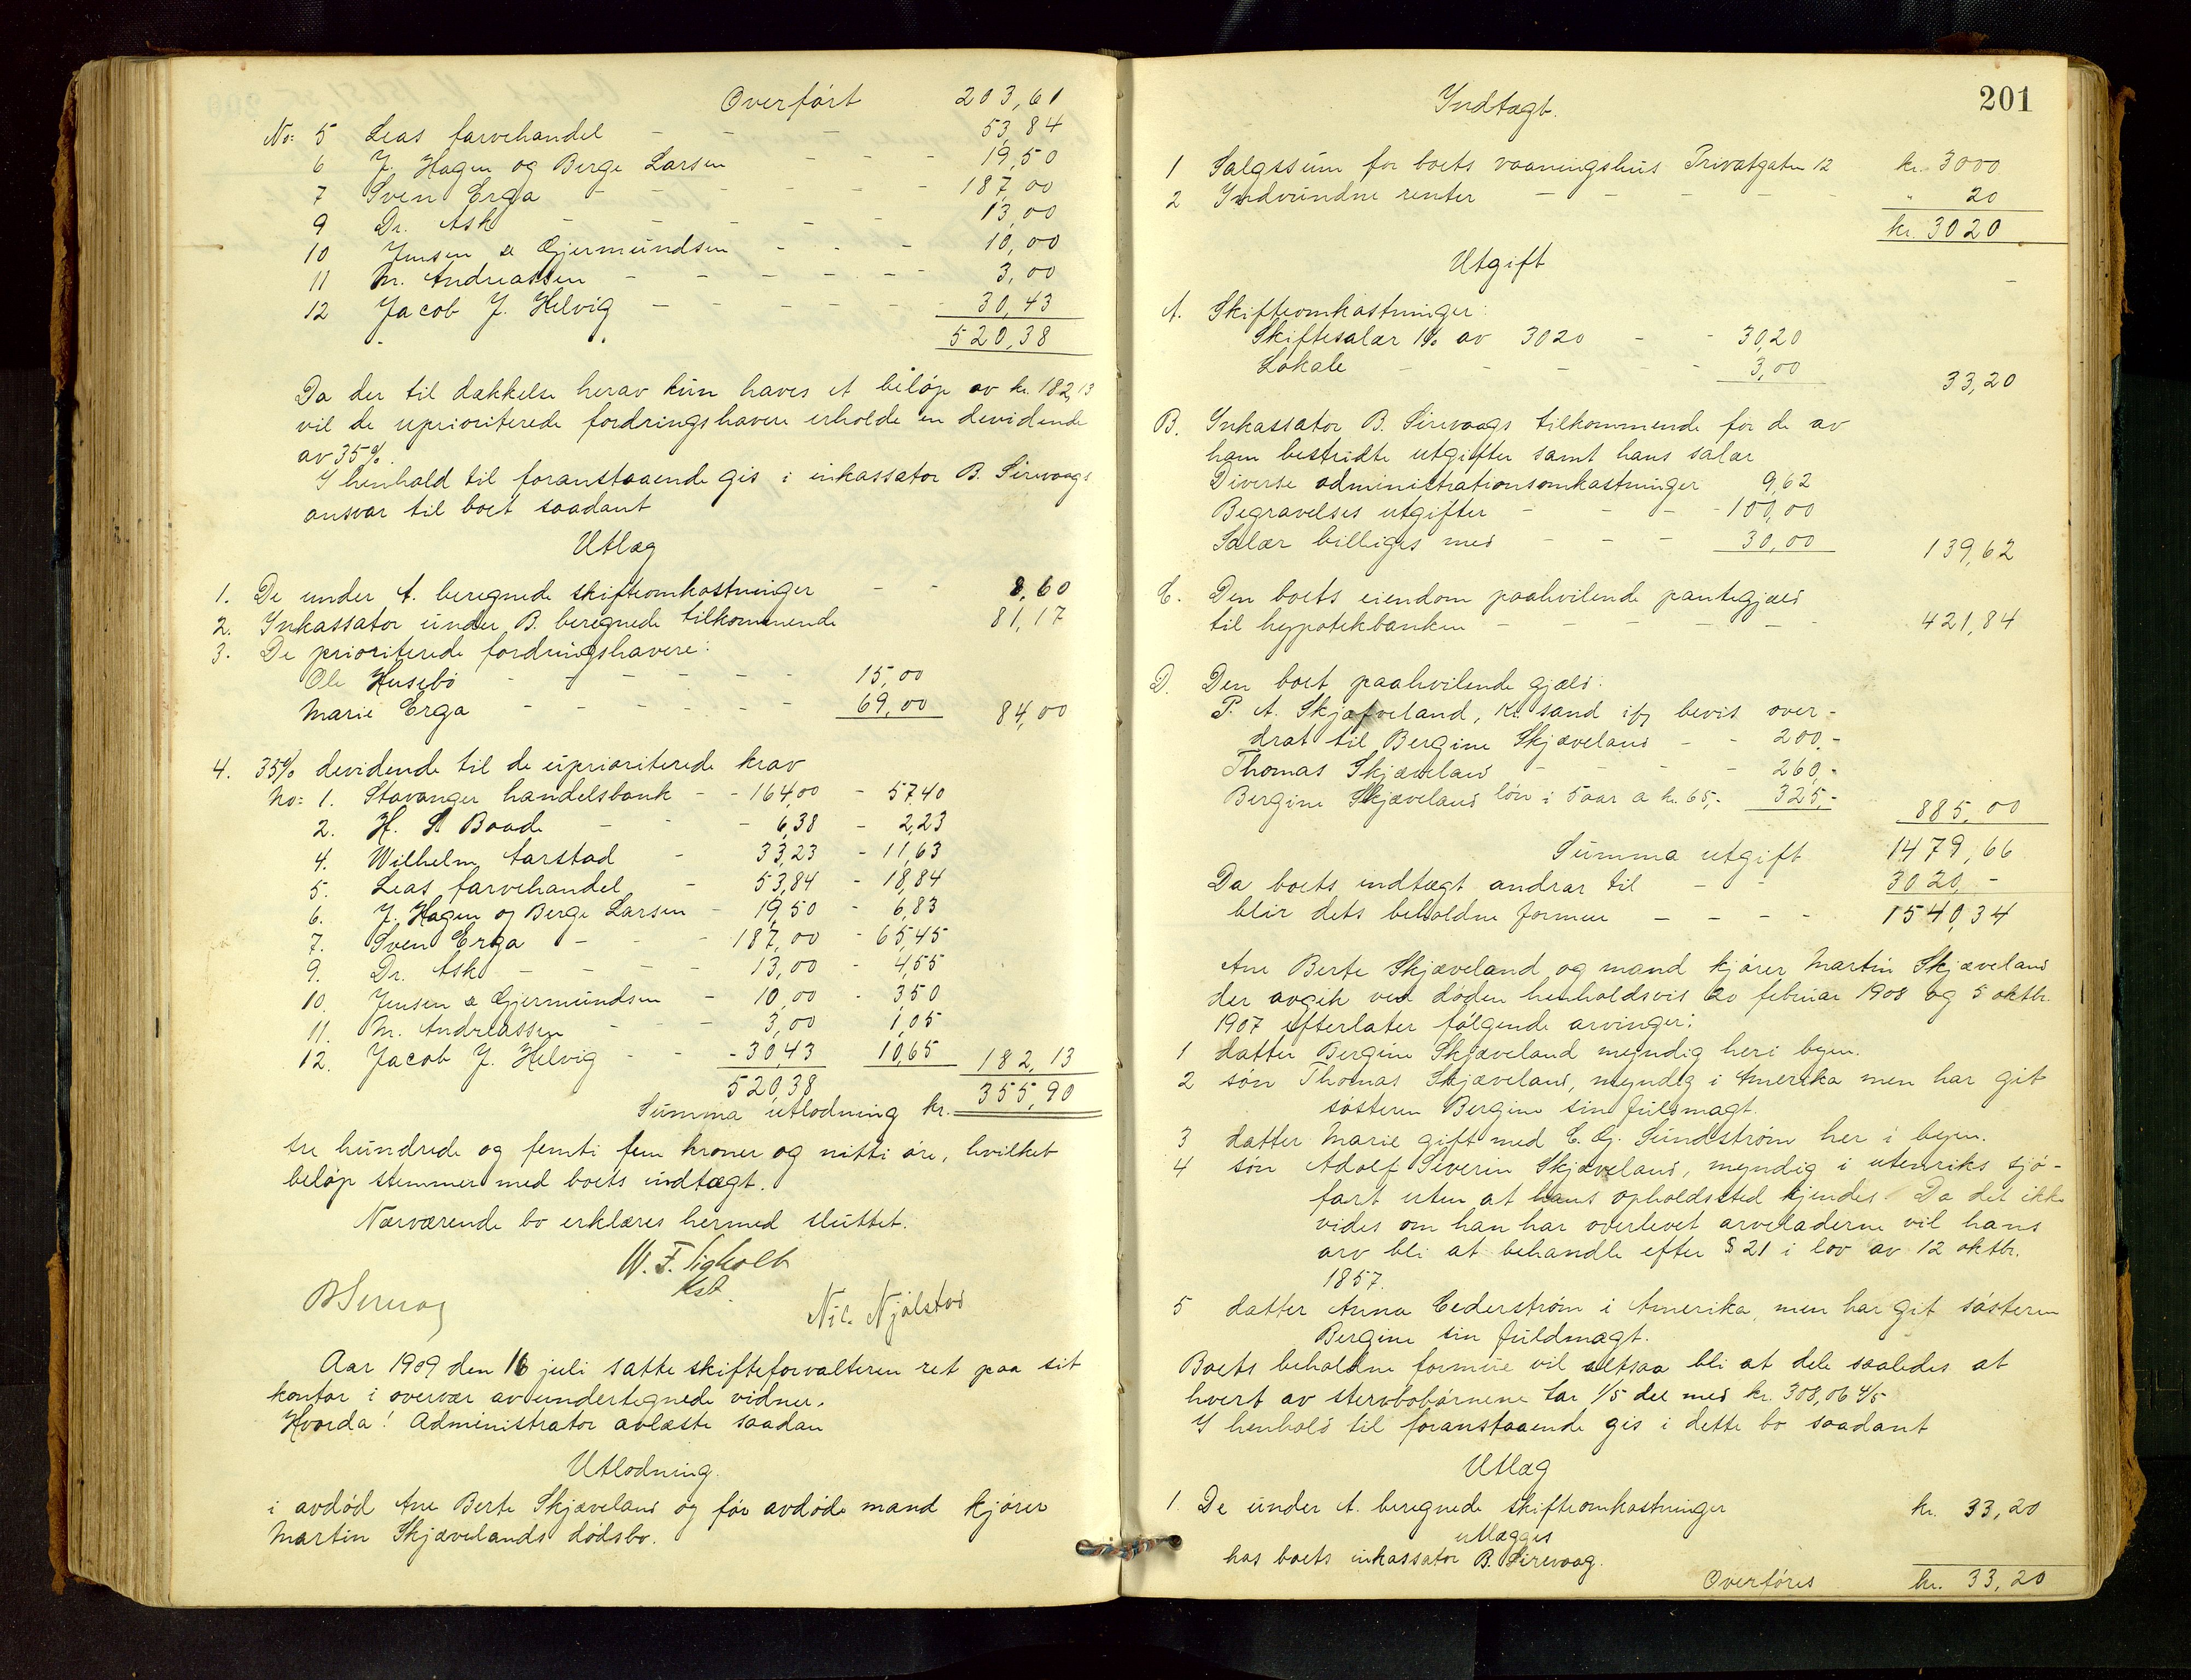 Overført 203,61
No: 5 Leas farvehandel - - - 53,84
6 J. Hagen og Berge Larsen - - - 19,50
7 Sven Erga - - - - - - 187,00
9 Dr. Ask - - - - - - 13,00
10 Jensen & Gjermundsen - - - 10,00
11 M. Andreassen - - - - - - 3,00
12 Jacob J. Helvig - - - - - - 30,43
520,38
Da der til dækkelse herav kun haves et beløp av kr. 182,13
vil de uprioriterede fordringshavere erholde en devidende
av 35%.
I henhold til foranstaaende gis i inkassator B. Sirevaags
ansvar til boet saadant
Utlæg
1. De under A. beregnede skifteomkostninger - - 8,60
2. Inkassator under B. beregnede tilkommende 81,17
3. De prioriterede fordringshavere:
Ole Husebø - - - - - - 15,00
Marie Erga - - - - - - 69,00 84,00
4. 35% devidende til de uprioriterede krav
No: 1. Stavanger handelsbank - - 164,00 - 57,40
2. H. S Baade - - - 6,38 - 2,23
4. Wilhelm Aarstad - 33,23 - 11,63
5. Leas farvehandel - 53,84 - 18,84
6. J. Hagen og Berge Larsen - 19,50 - 6,83
7. Sven Erga - - - 187,00 - 65,45
9. Dr. Ask - - - - 13,00 - 4,55
10. Jensen & Gjermundsen - 10,00 - 3,50
11. M. Andreassen - - - 3,00 1,05
12. Jacob J. Helvig - - - 30,43 10,65 182,13
520,38
Summa utlodning kr. 355,90
tre hundrede og femti fem kroner og nitti øre, hvilket
beløp stemmer med boets indtægt.
Nærværende bo erklæres hermed sluttet.
Kst.
B Sirevaag
Nil. Njålstad
Aar 1909 den 16 juli satte skifteforvalteren ret paa sit
kontor i overvær av undertegnede vidner.
Hvorda! Administrator avlæste saadan
Utlodning.
i avdød Ane Berte Skjæveland og før avdøde mand kjører
Martin Skjævelands dødsbo.
201
Indtægt.
1 Salgssum for boets vaaningshus Privatgaten 12 kr. 3000
2 Indvundne renter - - - - - " 20
kr. 3020
Utgift
A. Skifteomkostninger:
Skiftesalær 1% av 3020 - - 30,20
Lokale - - - - - 3,00
33,20
B. Inkassator B. Sirevaags tilkommende for de av
ham bestridte utgifter samt hans salær
Diverse administrationsomkostninger 9,62
Begravelses utgifter - - - - 100,00
Salær billiges med - - - 30,00 139,62
C. Den boets eiendom paahvilende pantegjæld
til hypotekbanken - - - - - - 421,84
D. Den boet paahvilende gjæld:
P. A. Skjæfveland, Kr.sand ifg bevis over-
drat til Bergine Skjæveland - - 200,-
Thomas Skjæveland - - - - 260,-
Bergine Skjæveland løn i 5 aar a kr. 65,- 325,-
885,00
Summa utgift 1479,66
Da boets indtægt andrar til - - 3020,-
blir dets beholdne formue - - - - 1540,34
Ane Berte Skjæveland og mand kjører Martin Skjæveland
der avgik ved døden henholdsvis 20 februar 1908 og 5 oktbr.
1907 efterlater følgende arvinger:
1 datter Bergine Skjæveland myndig her i byen.
2 søn Thomas Skjæveland, myndig i Amerika men har git
søsteren Bergine sin fuldmagt.
3 datter Marie gift med C. G. Sundstrøm her i byen.
4 søn Adolf Severin Skjæveland, myndig i utenriks sjø-
fart uten at hans opholdssted kjendes. Da det ikke
vides om han har overlevet arveladerne vil hans
arv bli at behandle efter § 21 i lov av 12 oktbr.
1857.
5 datter Anna Cederstrøm i Amerika, men har git søsteren
Bergine sin fuldmagt.
Boets beholdne formue vil altsaa bli at dele saaledes at
hvert av stervbobørnene tar 1/5 del med kr. 308,06 4/5
I henhold til foranstaaende gis i dette bo saadant
Utlæg
1. De under A. beregnede skifteomkostninger kr. 33,20
utlægges
hos boets inkassator B. Sirevaag.
Overføres kr. 33,20